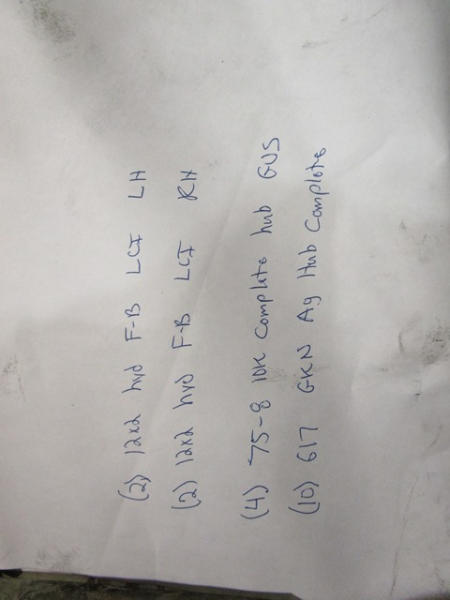 (2) 12x2 hyd F-B LCI LH
(2) 12x2 hyd F-B LCI RH
(4) 75-8 10K Complete hub GUS
(10) 617 GKN Ag Hub Complete